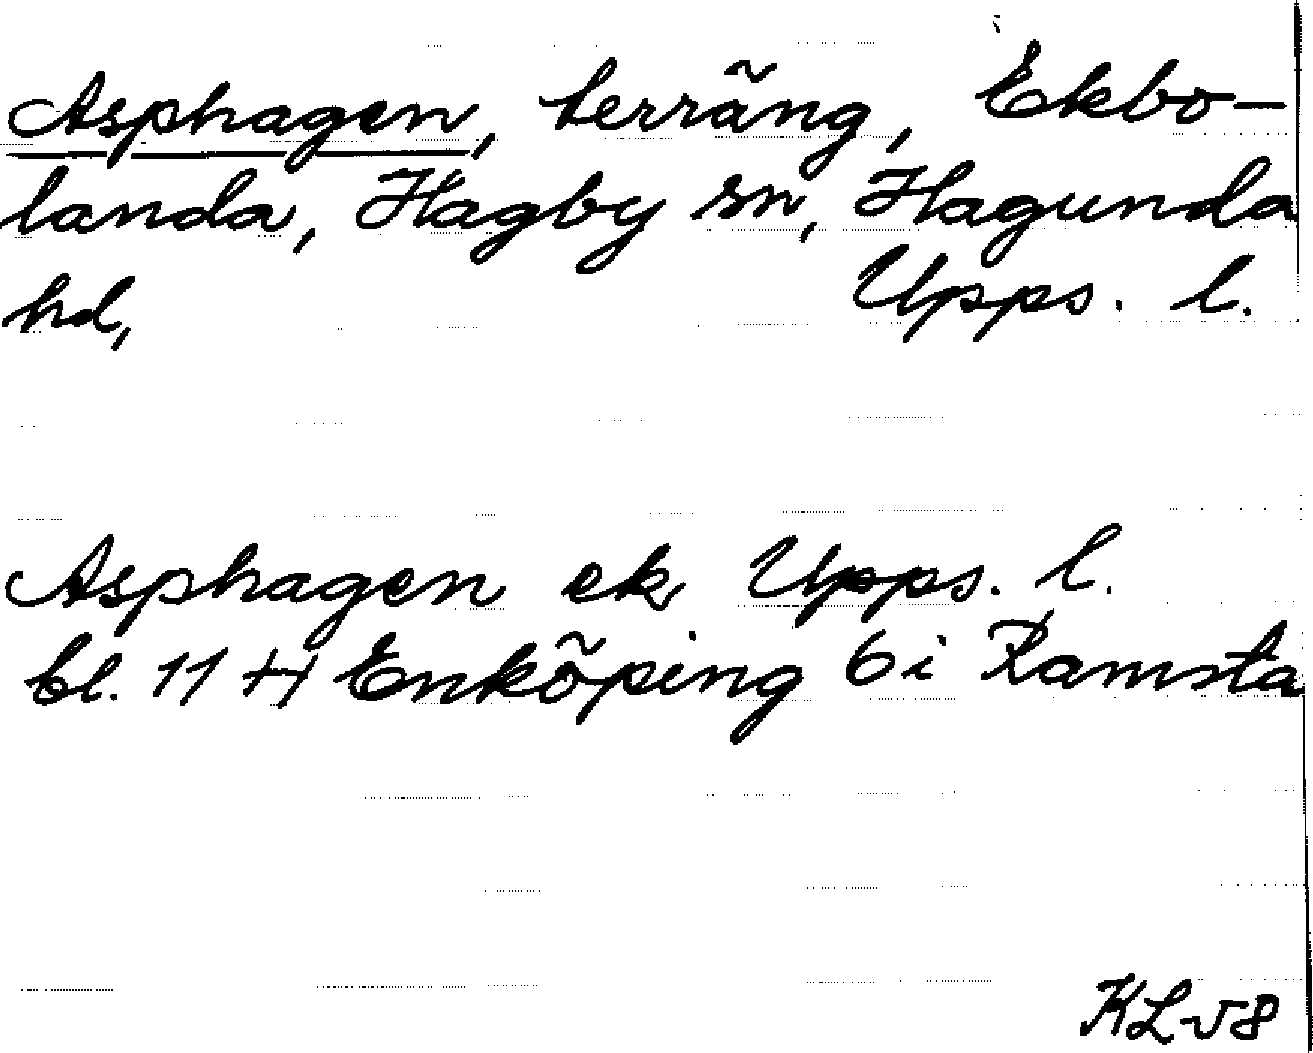 Asphagen, terräng, Ekbo-
landa, Hagby sn, Hagunda
hd, Upps. l.
Asphagen ek Upps. l.
bl. 11 H Enköping 6 i Ramsta
KL-58